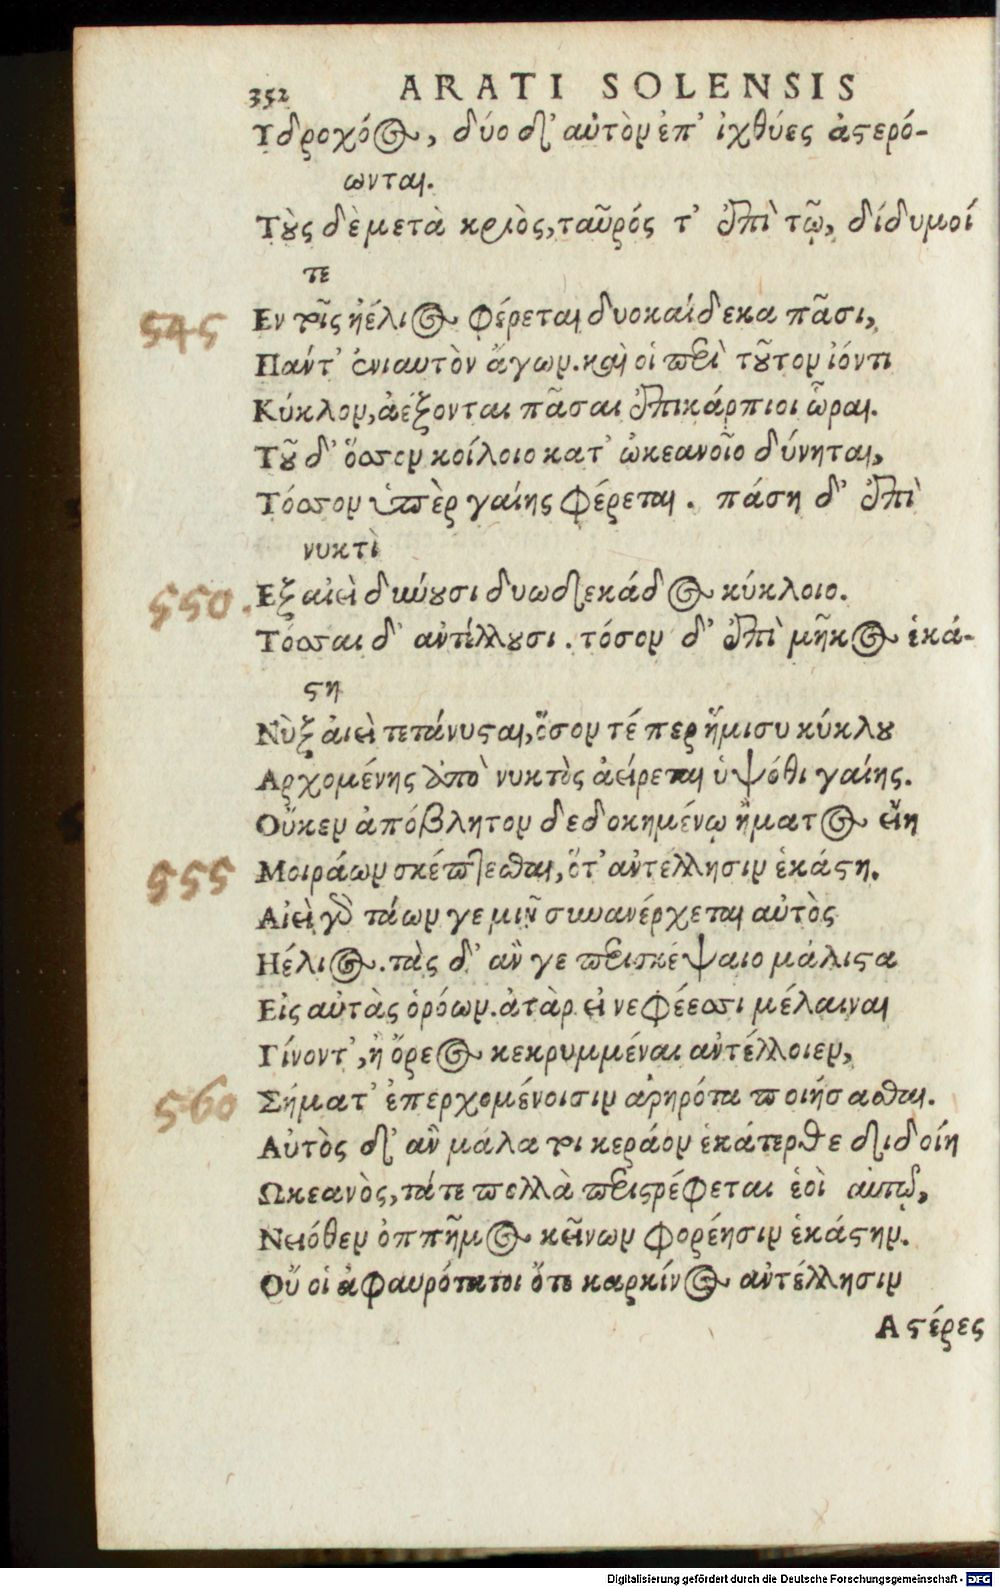 352 ARATI SOLENSIS
Υδροχόος, δύο δ’ αὐτὸν ἐπ’ ἰχθύες ἀστερό-
ωνται.
Τοὺς δὲ μετὰ κριὸς, ταῦρός τ’ ἐπὶ τῷ, δίδυμοί
τε
545 Εν τοῖς ἠέλιος φέρεται δυοκαίδεκα πᾶσι,
Πάντ’ ἐνιαυτὸν ἄγων. καὶ οἱ περὶ τοῦτον ἰόντι
Κύκλον, ἀέξονται πᾶσαι ἐπικάρπιοι ὧραι.
Τοῦ δ’ ὅσσον κοίλοιο κατ’ ὠκεανοῖο δύνηται,
Τόσσον ὑπὲρ γαίης φέρεται. πάσῃ δ’ ἐπὶ
νυκτὶ
550. Εξ αἰεὶ δύνουσι δυωδεκάδος κύκλοιο.
Τόσσαι δ’ αντέλλουσι. τόσον δ’ ἐπὶ μῆκος ἑκά-
στη
Νὺξ ἀιεὶ τετάνυσται, ὅσον τέ περ ἥμισυ κύκλου
Αρχομένης ἀπὸ νυκτὸς ἀείρεται ὑψόθι γαίης.
Οὔκεν ἀπόβλητον δεδοκημένῳ ἤματος εἴη
555 Μοιράων σκέπτεσθαι, ὅτ’ αντέλλησιν ἑκάστη.
Αἰεὶ γὰρ τάων γε μιῇ συνανέρχεται αὐτὸς
Ηέλιος. τὰς δ’ ἂν γε περισκέψαιο μάλιστα
Εἰς αὐτὰς ὁρόων. ἀτὰρ εἰ νεφέεσσι μέλαιναι
Γίνοντ’, ἢ ὄρεος κεκρυμμέναι αντέλλοιεν,
560 Σήματ’ ἐπερχομένοισιν αρηρότα ποιήσασθαι.
Αὐτὸς δ’ ἂν μάλα τοι κεράον ἑκάτερθε διδοίη
Ωκεανὸς, τάτε πολλὰ περιστρέφεται ἑοὶ αὐτῷ,
Νειόθεν ὁππῆμος κείνων φορέησιν ἑκάστην.
Οὔ οἱ ἀφαυρότατοι ὅτε καρκίνος αντέλλησιν
Αστέρες
Digitalisierung gefördert durch die Deutsche Forschungsgemeinschaft - DFG